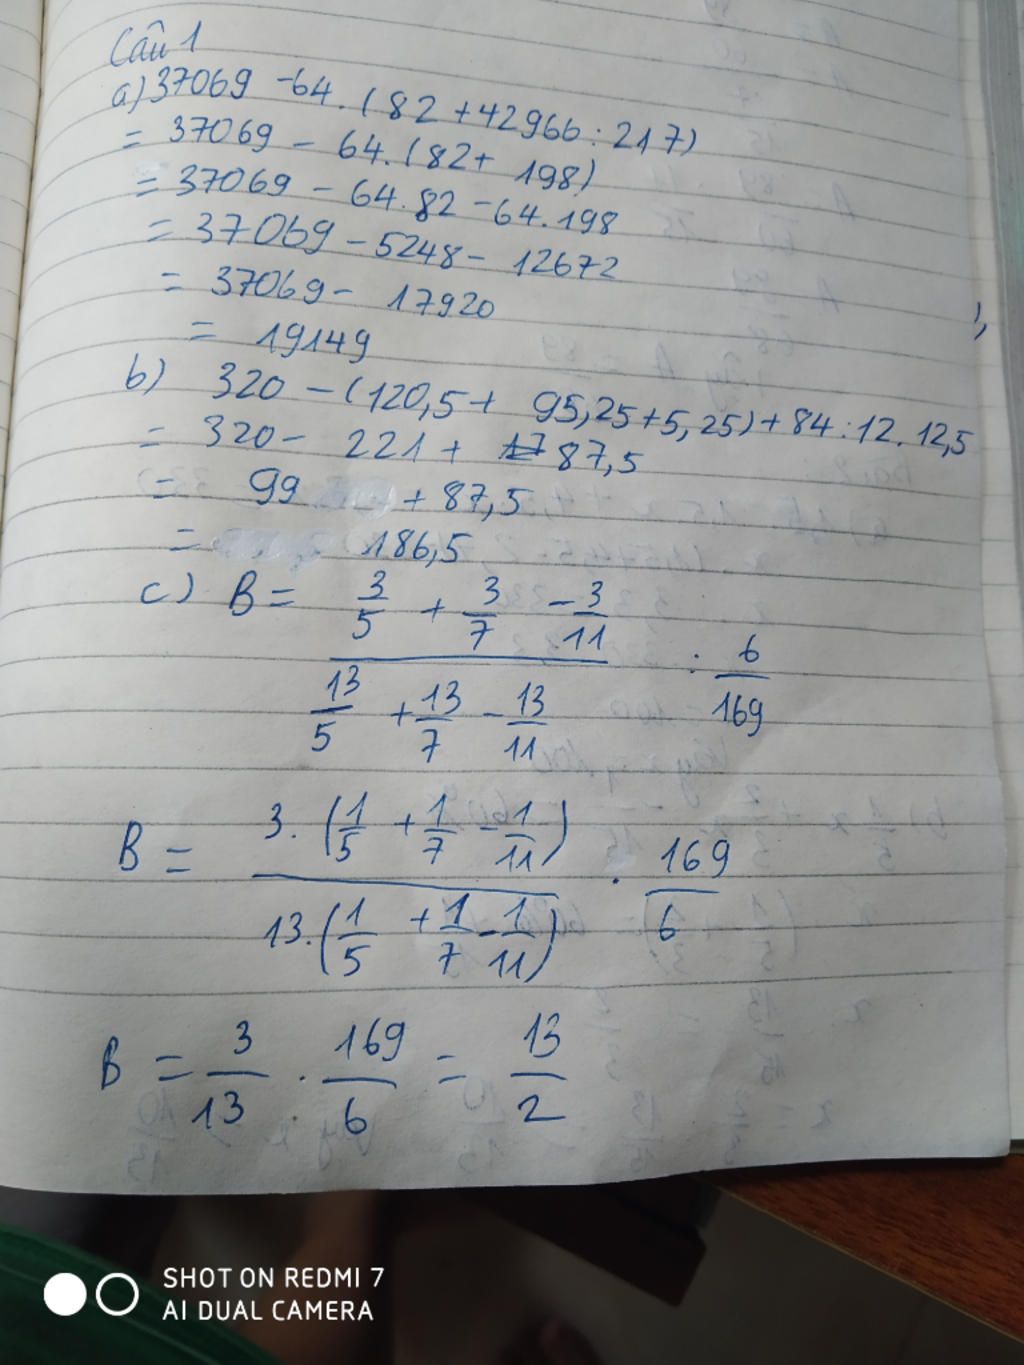 Câu 1
a) 37069 - 64. (82 + 42966 : 217)
= 37069 - 64. (82 + 198)
= 37069 - 64.82 - 64.198
= 37069 - 5248 - 12672
= 37069 - 17920
= 19149
b) 320 - (120,5 + 95,25 + 5,25) + 84 : 12. 12,5
= 320 - 221 + 87,5
= 99 + 87,5
= 186,5
c) B = (3/5 + 3/7 - 3/11) / (13/5 + 13/7 - 13/11) : 6/169
B = 3. (1/5 + 1/7 - 1/11) / 13. (1/5 + 1/7 - 1/11) . 169/6
B = 3/13 . 169/6 = 13/2
SHOT ON REDMI 7
AI DUAL CAMERA